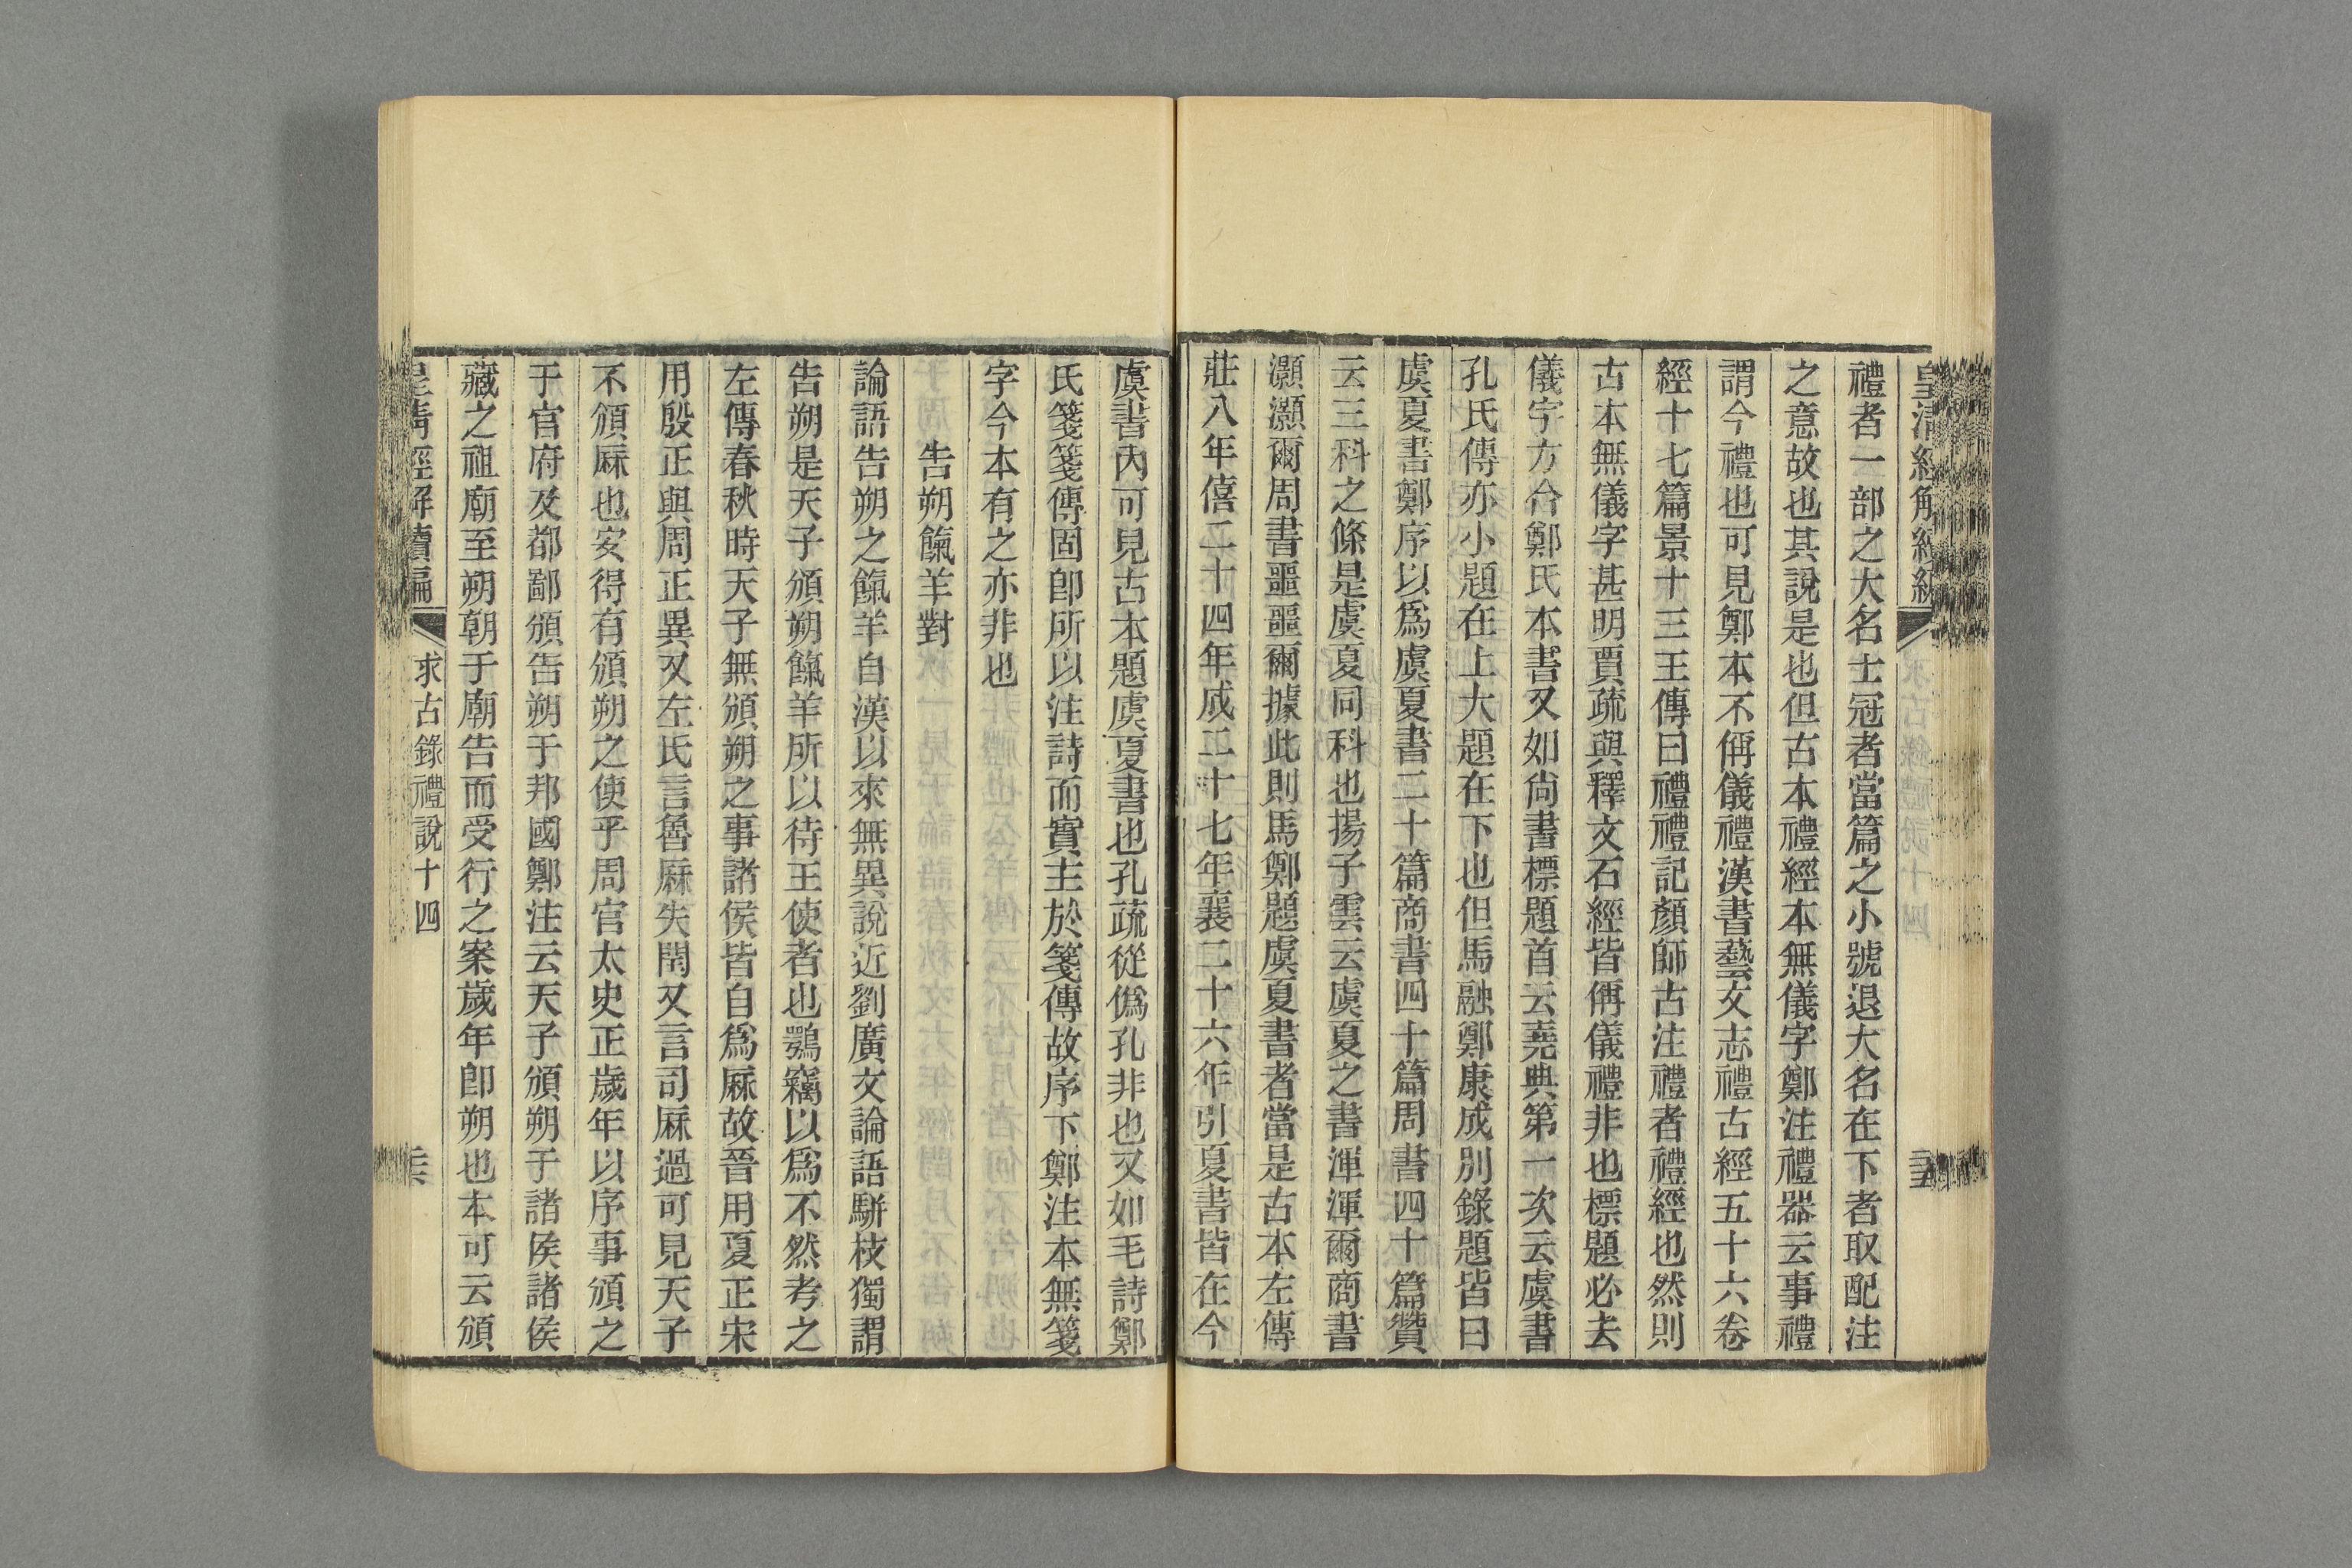 禮者一部之大名士冠者當篇之小號退大名在下者取配注
之意故也其說是也但古本禮經本無儀字鄭注禮器云事禮
謂今禮也可見鄭本不偁儀禮漢書藝文志禮古經五十六卷
經十七篇景十三王傳曰禮禮記顏師古注禮者禮經也然則
古本無儀字甚明賈疏與釋文石經皆偁儀禮非也標題必去
儀字方合鄭氏本書又如尚書標題首云堯典第一次云虞書
孔氏傳亦小題在上大題在下也但馬融鄭康成別錄題皆曰
虞夏書鄭序以爲虞夏書二十篇商書四十篇周書四十篇贊
云三科之條是虞夏同科也揚子雲云虞夏之書渾渾爾商書
灝灝爾周書噩噩爾據此則馬鄭題虞夏書者當是古本左傳
莊八年僖二十四年二十七年襄二十六年引夏書皆在今
虞書內可見古本題虞夏書也孔疏從僞孔非也又如毛詩鄭
氏箋箋傳固卽所以注詩而實主於箋傳故序下鄭注本無箋
字今本有之亦非也
告朔餼羊對
論語告朔之餼羊自漢以來無異說近劉廣文論語駢枝獨謂
告朔是天子頒朔餼羊所以待王使者也鶚竊以爲不然考之
左傳春秋時天子無頒朔之事諸侯皆自爲厤故晉用夏正宋
用殷正與周正異又左氏言魯厤失閏又言司厤過可見天子
不頒厤也安得有頒朔之使乎周官太史正歲年以序事頒之
于官府及都鄙頒告朔于邦國鄭注云天子頒朔于諸侯諸侯
藏之祖廟至朔朝于廟告而受行之案歲年卽朔也本可云頒
皇清經解續編 求古錄禮說十四